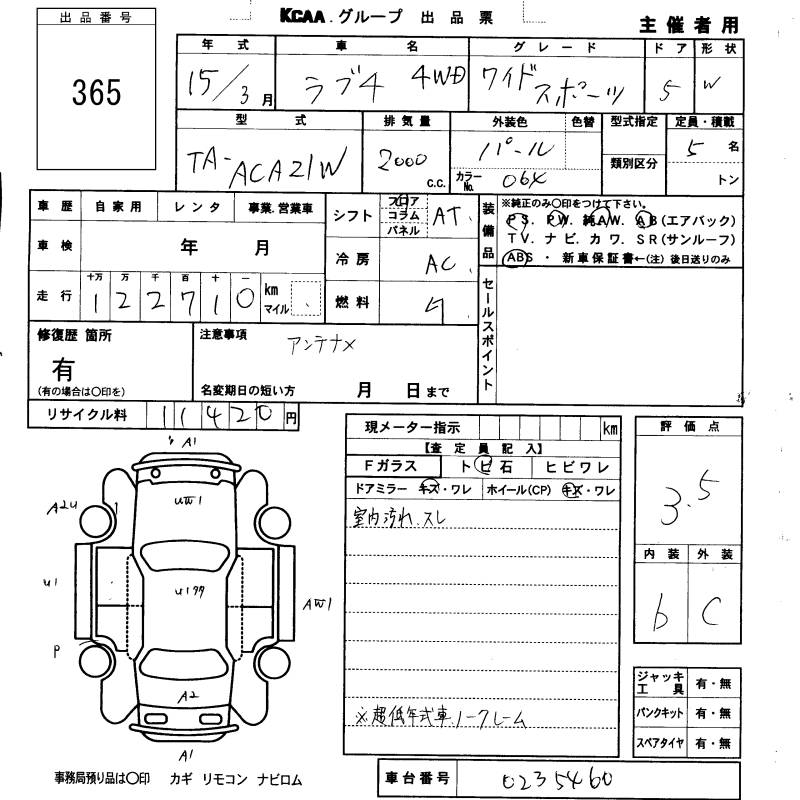 KCAA.グループ 出品票
主催者用
出品番号
365
年式 車名 グレード ドア 形状
15/3月 ラブ4 4WD ワイドスポーツ 5 W
型式 排気量 外装色 色替 型式指定 定員・積載
TA-ACA21W 2000 C.C. パール 5名
カラーNo. 064 類別区分 トン
車歴 自家用 レンタ 事業.営業車
車検 年 月
走行 十万 万 千 百 十 一
122710 km マイル
シフト フロア コラム パネル AT.
冷房 AC.
燃料
装備品
※純正のみ〇印をつけて下さい。
PS. PW. 純AW. AB(エアバック)
TV. ナビ. カワ. SR(サンルーフ)
ABS ・ 新車保証書←(注)後日送りのみ
セールスポイント
修復歴 箇所
有
(有の場合は〇印を)
注意事項
アンテナ×
名変期日の短い方 月 日まで
リサイクル料 11420円
現メーター指示 km
【査定員記入】
Fガラス トビ石 ヒビワレ
ドアミラー キズ・ワレ ホイール(CP) キズ・ワレ
室内汚れ.スレ
※超低年式車ノークレーム
評価点
3.5
内装 外装
b C
ジャッキ工具 有・無
パンクキット 有・無
スペアタイヤ 有・無
A1
A2U
UW1
U1
U177
AW1
P
A2
A1
事務局預り品は〇印 カギ リモコン ナビロム
車台番号 0235460